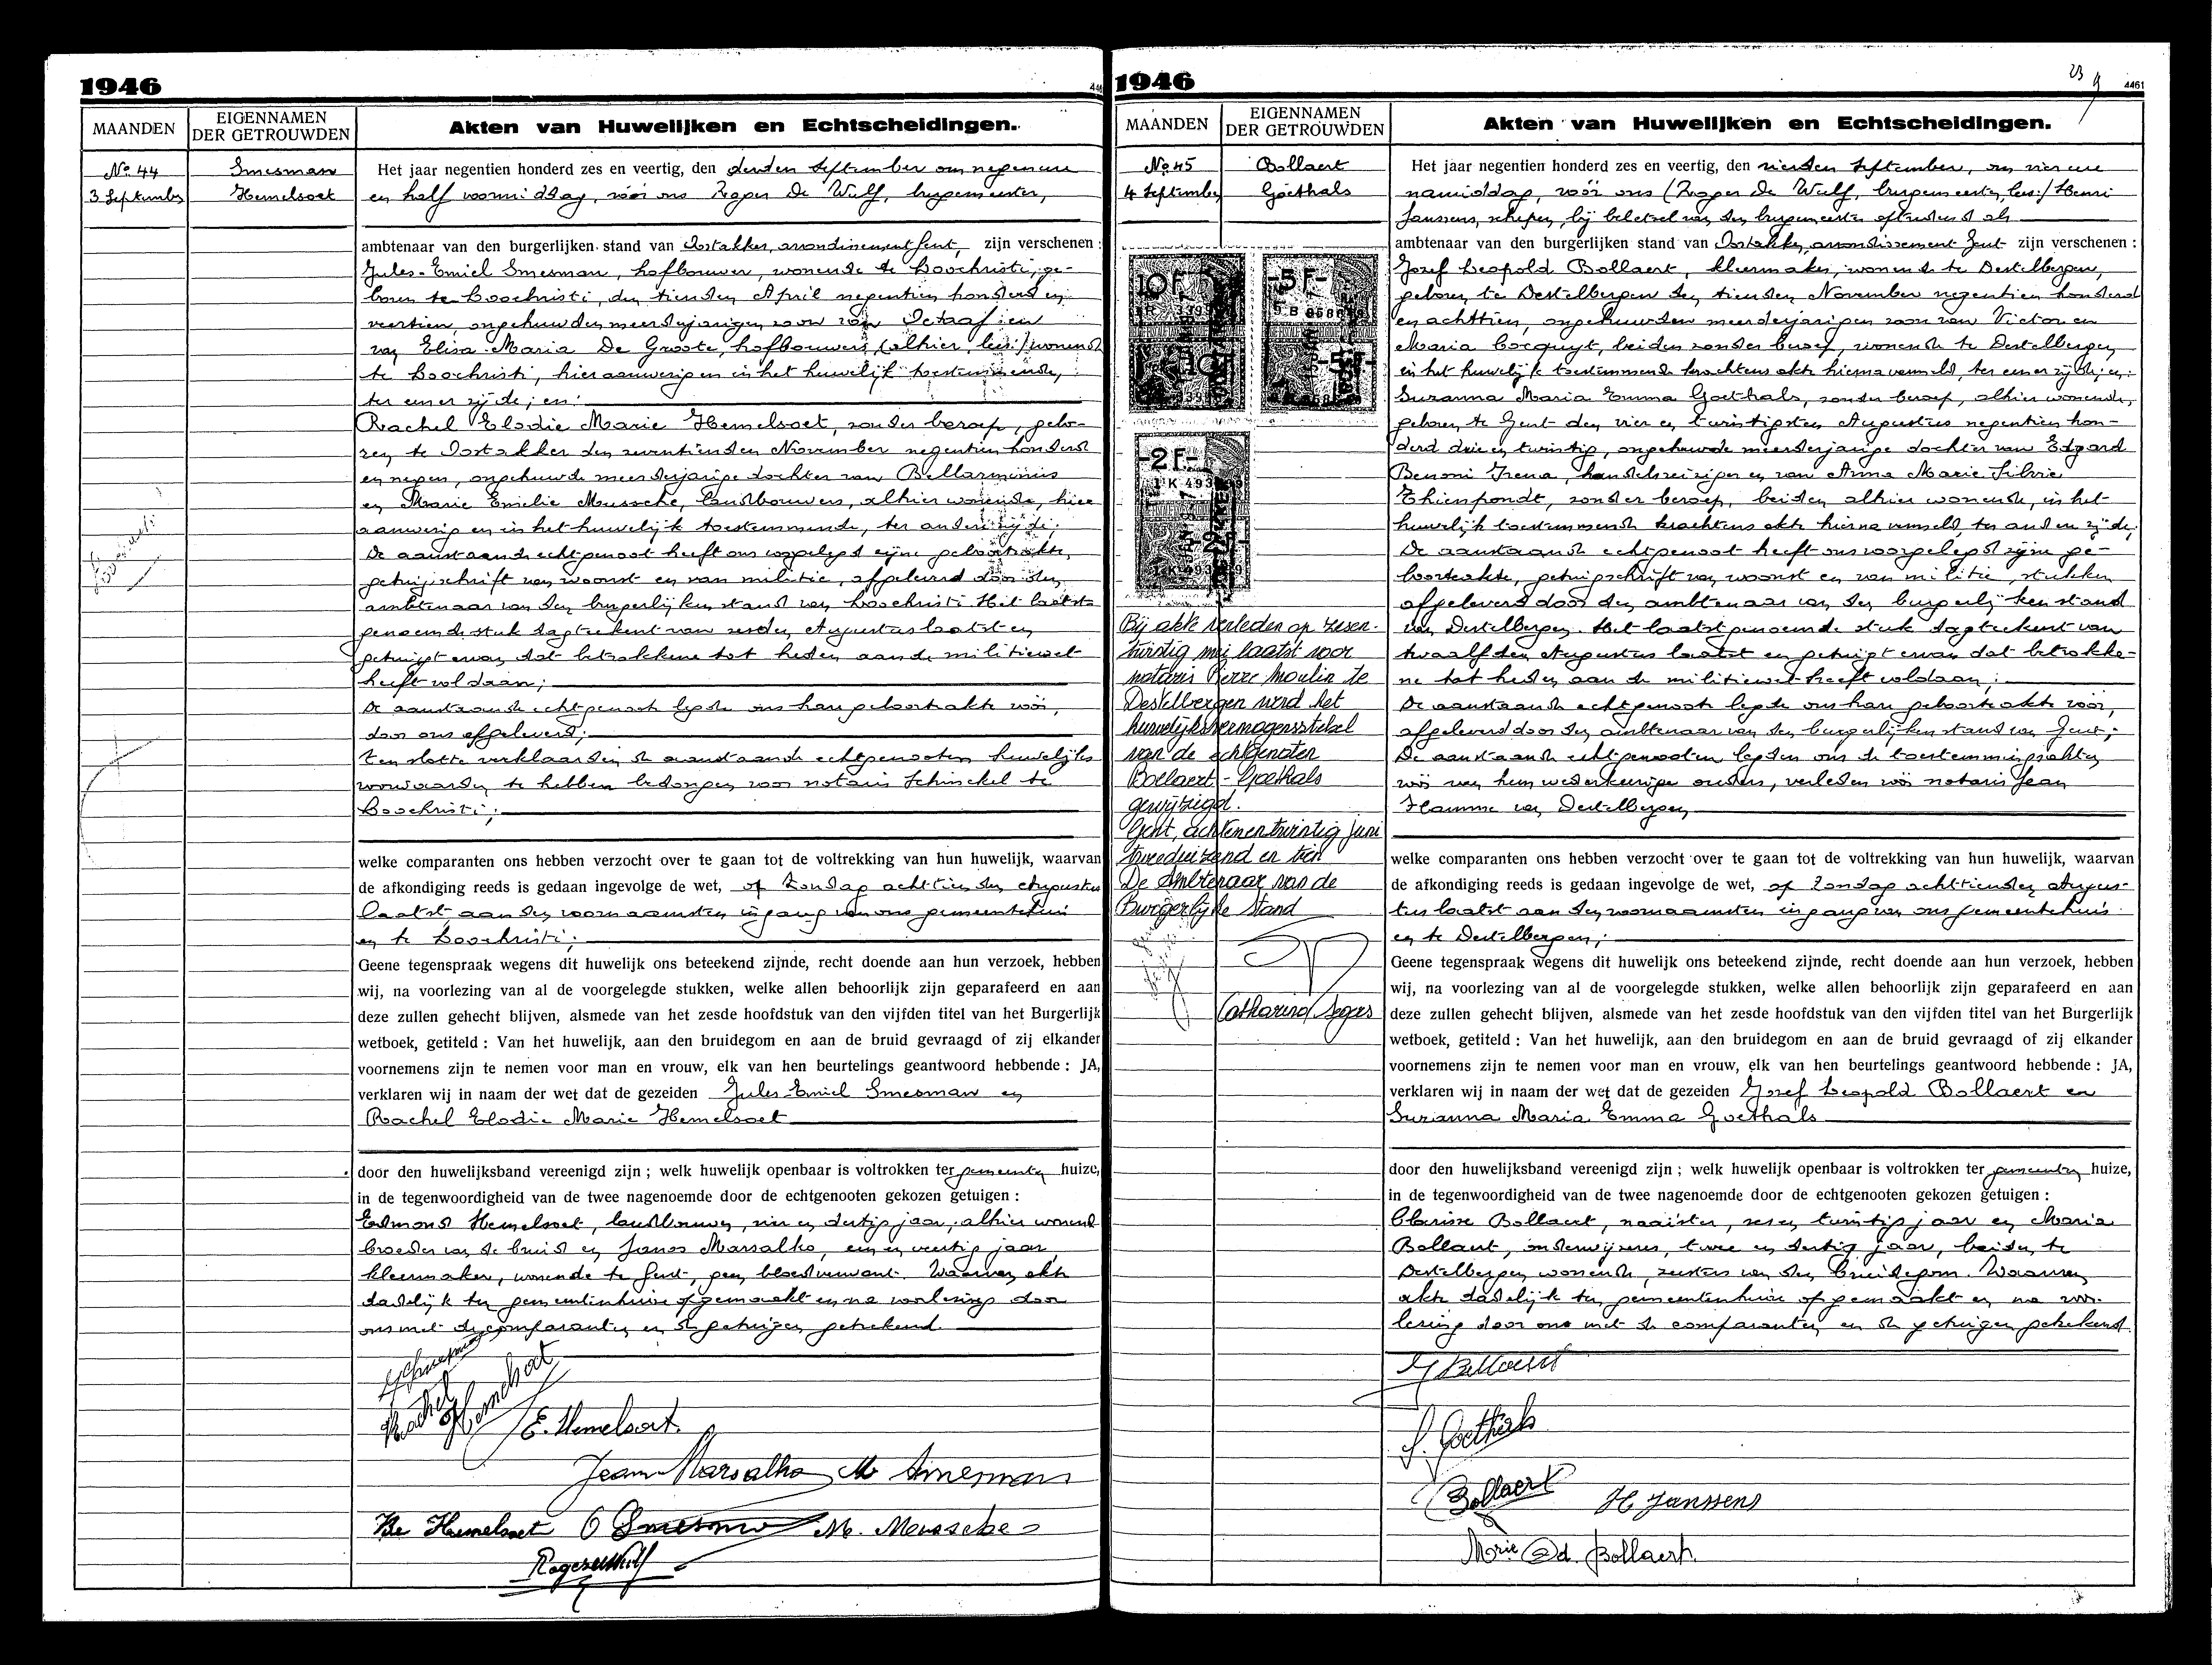 1946
MAANDEN
EIGENNAMEN
DER GETROUWDEN
Akten van Huwelijken en Echtscheidingen.
No 44
3 September
Smesman
Hemelsoet
Het jaar negentien honderd zes en veertig, den derden September om negen ure
en half voormiddag, vóór ons Roger De Wulf, burgemeester,
ambtenaar van den burgerlijken stand van Oostakker, arrondissement Gent, zijn verschenen :
Jules-Emiel Smesman, hofbouwer, wonende te Loochristi, ge-
boren te Loochristi, den tienden April negentien honderd en
veertien, ongehuwden meerderjarigen zoon van Octaaf en
van Elisa-Maria De Groote, hofbouwers, (alhier, lees:) wonend
te Loochristi, hier aanwezig en in het huwelijk toestemmende,
ter eener zijde; en:
Rachel Elodie Marie Hemelsoet, zonder beroep, gebo-
ren te Oostakker den zeventienden November negentien honderd
en negen, ongehuwde meerderjarige dochter van Bellarminus
en Marie Emelie Meussche, landbouwers, alhier wonende, hier
aanwezig en in het huwelijk toestemmende, ter andere zijde;
De aanstaande echtgenoot heeft ons voorgelegd zijne geboorteakte,
getuigschrift van woonst en van militie, afgeleverd door den
ambtenaar van den burgerlijken stand van Loochristi. Het laatst-
genoemde stuk dagteekent van zesden Augustus laatst en
getuigt ervan dat betrokkene tot heden aan de militiewet
heeft voldaan;
De aanstaande echtgenoote legde ons hare geboorteakte vóór,
door ons afgeleverd;
Ten slotte verklaarden de aanstaande echtgenooten huwelijks
voorwaarden te hebben bedongen voor notaris Schinckel te
Loochristi;
welke comparanten ons hebben verzocht over te gaan tot de voltrekking van hun huwelijk, waarvan
de afkondiging reeds is gedaan ingevolge de wet, op Zondag achttienden Augustus
laatst aan den voornaamsten ingang van ons gemeentehuis
en te Loochristi;
Geene tegenspraak wegens dit huwelijk ons beteekend zijnde, recht doende aan hun verzoek, hebben
wij, na voorlezing van al de voorgelegde stukken, welke allen behoorlijk zijn geparafeerd en aan
deze zullen gehecht blijven, alsmede van het zesde hoofdstuk van den vijfden titel van het Burgerlijk
wetboek, getiteld : Van het huwelijk, aan den bruidegom en aan de bruid gevraagd of zij elkander
voornemens zijn te nemen voor man en vrouw, elk van hen beurtelings geantwoord hebbende : JA,
verklaren wij in naam der wet dat de gezeiden Jules-Emiel Smesman en
Rachel Elodie Marie Hemelsoet
door den huwelijksband vereenigd zijn ; welk huwelijk openbaar is voltrokken ter gemeenten huize,
in de tegenwoordigheid van de twee nagenoemde door de echtgenooten gekozen getuigen :
Edmond Hemelsoet, landbouwer, vier en dertig jaar, alhier wonend
broeder van de bruid en Janos Marsalko, een en veertig jaar,
kleermaker, wonende te Gent, geen bloedverwant. Waarvan akte
dadelijk ten gemeentenhuize opgemaakt en na voorlezing door
ons met de comparanten en de getuigen geteekend.
Rachel Hemelsoet
E. Hemelsoet.
Jean Marsalko M Smesman
Be Hemelsoet O Smesman M. Meussche
Roger De Wulf
1946
4461
MAANDEN
EIGENNAMEN
DER GETROUWDEN
Akten van Huwelijken en Echtscheidingen.
No 45
4 September
Bollaert
Goethals
10F
-5F-
-2F-
Bij akte verleden op zesen-
twintig mei laatst voor
notaris Pierre Moulin te
Destelbergen werd het
huwelijksvermogensstelsel
van de echtgenoten
Bollaert - Goethals
gewijzigd.
Gent, achtentwintig juni
tweeduizend en tien
De Ambtenaar van de
Burgerlijke Stand
Catharina Segers
Het jaar negentien honderd zes en veertig, den vierden September, om vier ure
namiddag, vóór ons (Roger De Wulf, burgemeester, lees:) Henri
Janssens, schepen, bij beletsel van den burgemeester optredend als
ambtenaar van den burgerlijken stand van Oostakker, arrondissement Gent zijn verschenen :
Jozef Leopold Bollaert, kleermaker, wonende te Destelbergen,
geboren te Destelbergen den tienden November negentien honderd
en achttien, ongehuwden meerderjarigen zoon van Victor en
Maria Cocquyt, beiden zonder beroep, wonende te Destelbergen
en in het huwelijk toestemmende krachtens akte hierna vermeld, ter eener zijde; en:
Suzanna Maria Emma Goethals, zonder beroep, alhier wonende,
geboren te Gent den vier en twintigsten Augustus negentien hon-
derd drie en twintig, ongehuwde meerderjarige dochter van Edgard
Benoni Irena, handelsreiziger en van Anna Marie Silvie
Thienpondt, zonder beroep, beiden alhier wonende, in het
huwelijk toestemmende krachtens akte hierna vermeld, ter andere zijde;
De aanstaande echtgenoot heeft ons voorgelegd zijne ge-
boorteakte, getuigschrift van woonst en van militie, stukken
afgeleverd door den ambtenaar van den burgerlijken stand
van Destelbergen. Het laatstgenoemde stuk dagteekent van
twaalfden Augustus laatst en getuigt ervan dat betrokke-
ne tot heden aan de militiewet heeft voldaan;
De aanstaande echtgenoote legde ons hare geboorteakte vóór,
afgeleverd door den ambtenaar van den burgerlijken stand van Gent;
De aanstaande echtgenooten legden ons de toestemmingsakten
vóór van hun wederkeerige ouders, verleden vóór notaris Jean
Hamme van Destelbergen
welke comparanten ons hebben verzocht over te gaan tot de voltrekking van hun huwelijk, waarvan
de afkondiging reeds is gedaan ingevolge de wet, op Zondag achttienden Augus-
tus laatst aan den voornaamsten ingang van ons gemeentehuis
en te Destelbergen;
Geene tegenspraak wegens dit huwelijk ons beteekend zijnde, recht doende aan hun verzoek, hebben
wij, na voorlezing van al de voorgelegde stukken, welke allen behoorlijk zijn geparafeerd en aan
deze zullen gehecht blijven, alsmede van het zesde hoofdstuk van den vijfden titel van het Burgerlijk
wetboek, getiteld : Van het huwelijk, aan den bruidegom en aan de bruid gevraagd of zij elkander
voornemens zijn te nemen voor man en vrouw, elk van hen beurtelings geantwoord hebbende : JA,
verklaren wij in naam der wet dat de gezeiden Jozef Leopold Bollaert en
Suzanna Maria Emma Goethals
door den huwelijksband vereenigd zijn ; welk huwelijk openbaar is voltrokken ter gemeenten huize,
in de tegenwoordigheid van de twee nagenoemde door de echtgenooten gekozen getuigen :
Clarisse Bollaert, naaister, zes en twintig jaar en Maria
Bollaert, onderwijzeres, twee en dertig jaar, beiden te
Destelbergen wonende, zusters van den bruidegom. Waarvan
akte dadelijk ten gemeentenhuize opgemaakt en na voor-
lezing door ons met de comparanten en de getuigen geteekend.
J Bollaert
S. Goethals
Bollaert H Janssens
Marie Bollaert.